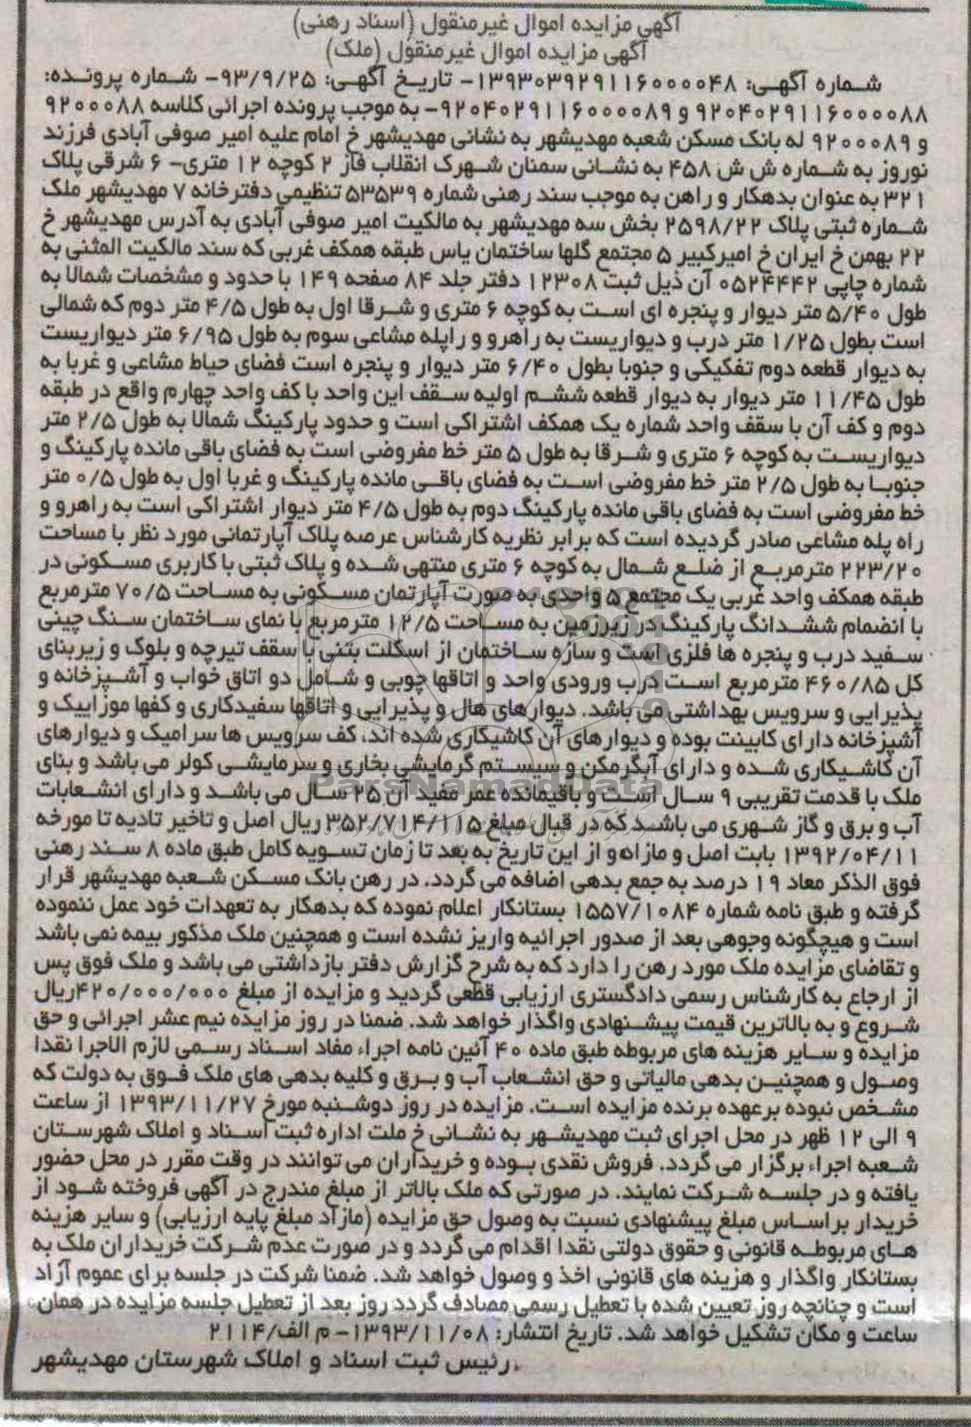 آگهی مزایده اموال غیرمنقول (اسناد رهنی)
آگهی مزایده اموال غیرمنقول (ملک)
شماره آگهی: ۱۳۹۳۰۳۹۲۹۱۱۶۰۰۰۰۴۸- تاریخ آگهی: ۹۳/۹/۲۵- شماره پرونده:
۹۲۰۴۰۲۹۱۱۶۰۰۰۰۸۸ و ۹۲۰۴۰۲۹۱۱۶۰۰۰۰۸۹- به موجب پرونده اجرائی کلاسه ۹۲۰۰۰۸۸
و ۹۲۰۰۰۸۹ له بانک مسکن شعبه مهدیشهر به نشانی مهدیشهر خ امام علیه امیر صوفی آبادی فرزند
نوروز به شماره ش ش ۴۵۸ به نشانی سمنان شهرک انقلاب فاز ۲ کوچه ۱۲ متری- ۶ شرقی پلاک
۳۲۱ به عنوان بدهکار و راهن به موجب سند رهنی شماره ۵۳۵۳۹ تنظیمی دفترخانه ۷ مهدیشهر ملک
شماره ثبتی پلاک ۲۵۹۸/۲۲ بخش سه مهدیشهر به مالکیت امیر صوفی آبادی به آدرس مهدیشهر خ
۲۲ بهمن خ ایران خ امیرکبیر ۵ مجتمع گلها ساختمان یاس طبقه همکف غربی که سند مالکیت المثنی به
شماره چاپی ۰۵۲۴۴۴۲ آن ذیل ثبت ۱۲۳۰۸ دفتر جلد ۸۴ صفحه ۱۴۹ با حدود و مشخصات شمالا به
طول ۵/۴۰ متر دیوار و پنجره ای است به کوچه ۶ متری و شرقا اول به طول ۴/۵ متر دوم که شمالی
است بطول ۱/۲۵ متر درب و دیواریست به راهرو و راپله مشاعی سوم به طول ۶/۹۵ متر دیواریست
به دیوار قطعه دوم تفکیکی و جنوبا بطول ۶/۴۰ متر دیوار و پنجره است فضای حیاط مشاعی و غربا به
طول ۱۱/۴۵ متر دیوار به دیوار قطعه ششم اولیه سقف این واحد با کف واحد چهارم واقع در طبقه
دوم و کف آن با سقف واحد شماره یک همکف اشتراکی است و حدود پارکینگ شمالا به طول ۲/۵ متر
دیواریست به کوچه ۶ متری و شرقا به طول ۵ متر خط مفروضی است به فضای باقی مانده پارکینگ و
جنوبا به طول ۲/۵ متر خط مفروضی است به فضای باقی مانده پارکینگ و غربا اول به طول ۰/۵ متر
خط مفروضی است به فضای باقی مانده پارکینگ دوم به طول ۴/۵ متر دیوار اشتراکی است به راهرو و
راه پله مشاعی صادر گردیده است که برابر نظریه کارشناس عرصه پلاک آپارتمانی مورد نظر با مساحت
۲۲۳/۲۰ مترمربع از ضلع شمال به کوچه ۶ متری منتهی شده و پلاک ثبتی با کاربری مسکونی در
طبقه همکف واحد غربی یک مجتمع ۵ واحدی به صورت آپارتمان مسکونی به مساحت ۷۰/۵ مترمربع
با انضمام ششدانگ پارکینگ در زیرزمین به مساحت ۱۲/۵ مترمربع با نمای ساختمان سنگ چینی
سفید درب و پنجره ها فلزی است و سازه ساختمان از اسکلت بتنی با سقف تیرچه و بلوک و زیربنای
کل ۴۶۰/۸۵ مترمربع است درب ورودی واحد و اتاقها چوبی و شامل دو اتاق خواب و آشپزخانه و
پذیرایی و سرویس بهداشتی می باشد. دیوارهای هال و پذیرایی و اتاقها سفیدکاری و کفها موزاییک و
آشپزخانه دارای کابینت بوده و دیوارهای آن کاشیکاری شده اند، کف سرویس ها سرامیک و دیوارهای
آن کاشیکاری شده و دارای آبگرمکن و سیستم گرمایشی بخاری و سرمایشی کولر می باشد و بنای
ملک با قدمت تقریبی ۹ سال است و باقیمانده عمر مفید آن ۲۵ سال می باشد و دارای انشعابات
آب و برق و گاز شهری می باشد که در قبال مبلغ ۳۵۲/۷۱۴/۱۱۵ ریال اصل و تاخیر تادیه تا مورخه
۱۳۹۲/۰۴/۱۱ بابت اصل و مازاد و از این تاریخ به بعد تا زمان تسویه کامل طبق ماده ۸ سند رهنی
فوق الذکر معاد ۱۹ درصد به جمع بدهی اضافه می گردد. در رهن بانک مسکن شعبه مهدیشهر قرار
گرفته و طبق نامه شماره ۱۵۵۷/۱۰۸۴ بستانکار اعلام نموده که بدهکار به تعهدات خود عمل ننموده
است و هیچگونه وجوهی بعد از صدور اجرائیه واریز نشده است و همچنین ملک مذکور بیمه نمی باشد
و تقاضای مزایده ملک مورد رهن را دارد که به شرح گزارش دفتر بازداشتی می باشد و ملک فوق پس
از ارجاع به کارشناس رسمی دادگستری ارزیابی قطعی گردید و مزایده از مبلغ ۴۲۰/۰۰۰/۰۰۰ریال
شروع و به بالاترین قیمت پیشنهادی واگذار خواهد شد. ضمنا در روز مزایده نیم عشر اجرائی و حق
مزایده و سایر هزینه های مربوطه طبق ماده ۴۰ آئین نامه اجراء مفاد اسناد رسمی لازم الاجرا نقدا
وصول و همچنین بدهی مالیاتی و حق انشعاب آب و برق و کلیه بدهی های ملک فوق به دولت که
مشخص نبوده برعهده برنده مزایده است. مزایده در روز دوشنبه مورخ ۱۳۹۳/۱۱/۲۷ از ساعت
۹ الی ۱۲ ظهر در محل اجرای ثبت مهدیشهر به نشانی خ ملت اداره ثبت اسناد و املاک شهرستان
شعبه اجراء برگزار می گردد. فروش نقدی بوده و خریداران می توانند در وقت مقرر در محل حضور
یافته و در جلسه شرکت نمایند. در صورتی که ملک بالاتر از مبلغ مندرج در آگهی فروخته شود از
خریدار براساس مبلغ پیشنهادی نسبت به وصول حق مزایده (مازاد مبلغ پایه ارزیابی) و سایر هزینه
های مربوطه قانونی و حقوق دولتی نقدا اقدام می گردد و در صورت عدم شرکت خریداران ملک به
بستانکار واگذار و هزینه های قانونی اخذ و وصول خواهد شد. ضمنا شرکت در جلسه برای عموم آزاد
است و چنانچه روز تعیین شده با تعطیل رسمی مصادف گردد روز بعد از تعطیل جلسه مزایده در همان
ساعت و مکان تشکیل خواهد شد. تاریخ انتشار: ۱۳۹۳/۱۱/۰۸- م الف/۲۱۱۴
رئیس ثبت اسناد و املاک شهرستان مهدیشهر
ParsNamadData